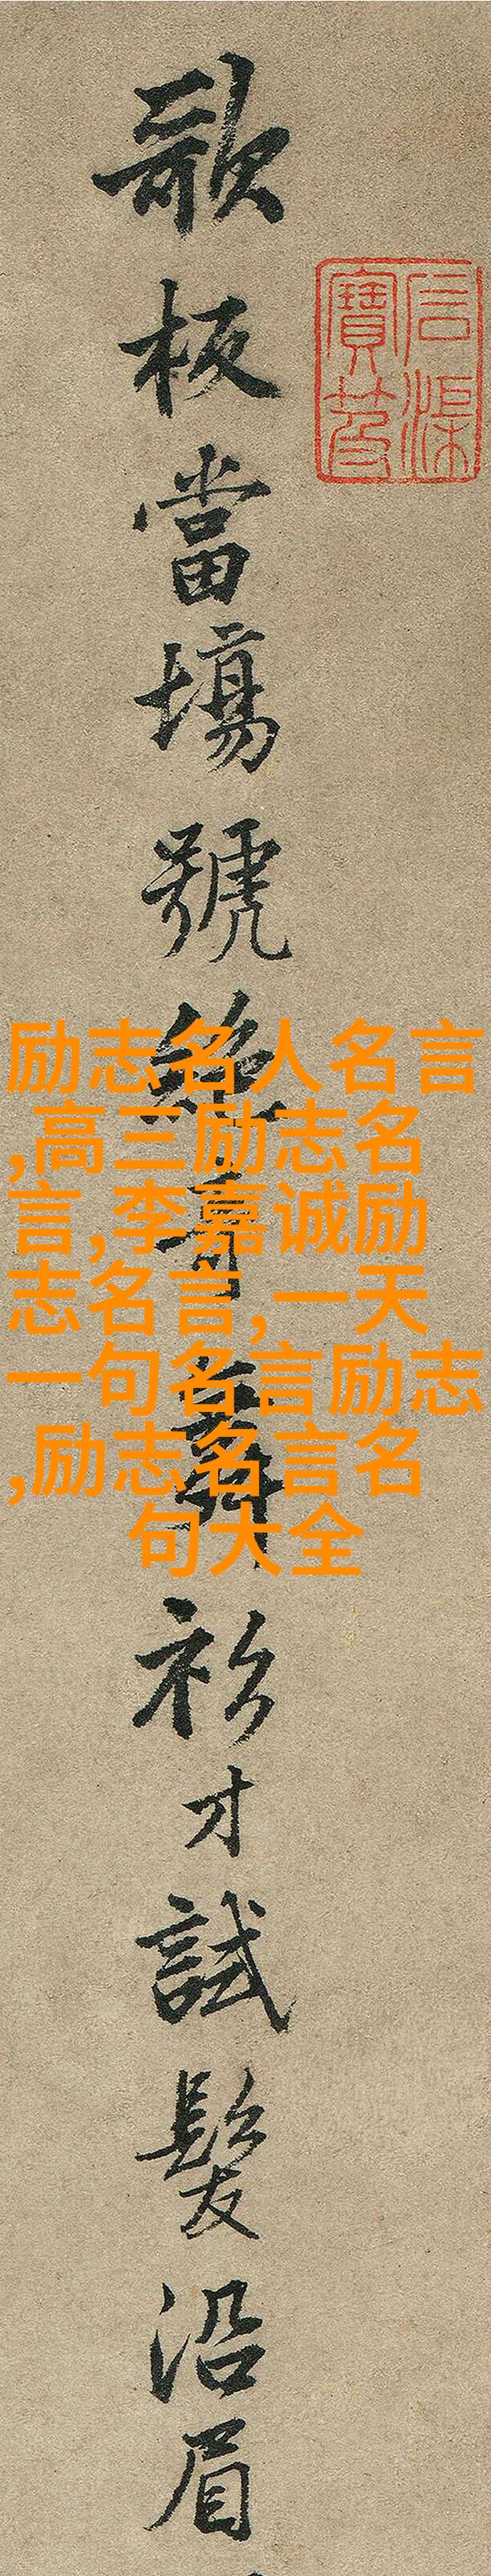 歌板當塲號絕奇舞衫才試髮沿眉
石渠
寶笈
励志名人名言
,高三励志名
言,李嘉诚励
志名言,一天
一句名言励志
,励志名言名
句大全